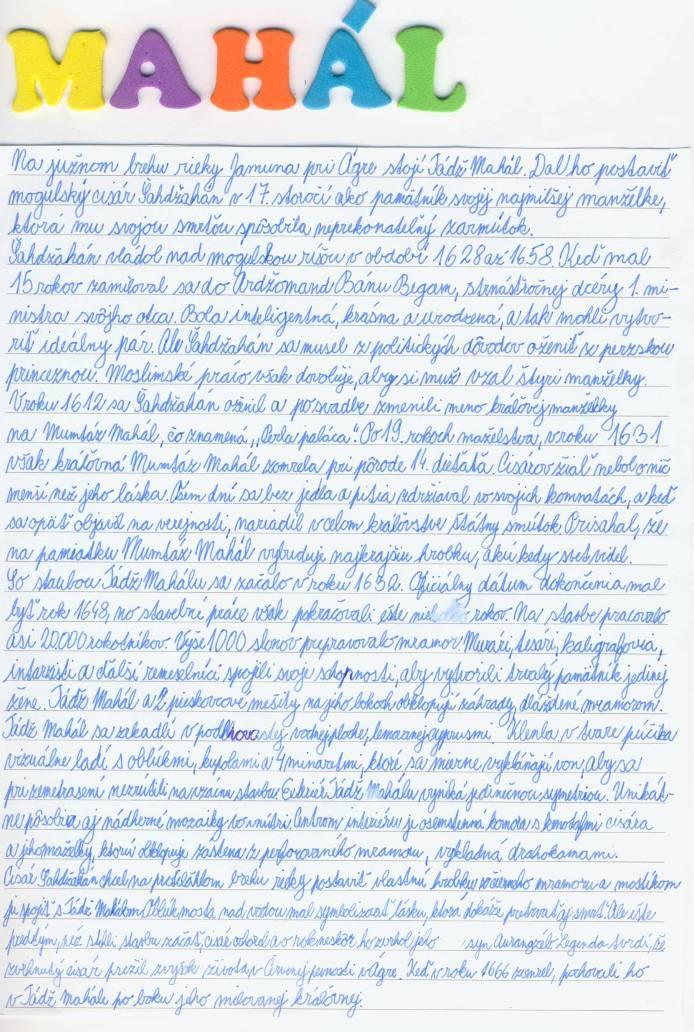 MAHÁL
Na južnom brehu rieky Jamuna pri Ágre stojí Tádž Mahál. Dal ho postaviť
mogulský cisár Šahdžahán v 17. storočí ako pamätník svojej najmilšej manželke,
ktorá mu svojou smrťou spôsobila neprekonateľný zármutok.
Šahdžahán vládol nad mogulskou ríšou v období 1628 až 1658. Keď mal
15 rokov zamiloval sa do Ardžomand Bánu Begam, štrnásťročnej dcéry 1. mi-
nistra svojho otca. Bola inteligentná, krásna a urodzená, a tak mohli vytvo-
riť ideálny pár. Ale Šahdžahán sa musel z politických dôvodov oženiť z perzskou
princeznou. Moslimské právo však dovoľuje, aby si muž vzal štyri manželky.
V roku 1612 sa Šahdžahán oženil a po svadbe zmenili meno kráľovej manželky
na Mumtáz Mahál, čo znamená „Perla paláca.“ Po 19. rokoch mažel­stva, v roku 1631
však kráľovná Mumtáz Mahál zomrela pri pôrode 14. dieťaťa. Cisárov žiaľ nebol o nič
menší než jeho láska. Osem dní sa bez jedla a pitia zdržiaval vo svojich komnatách, a keď
sa opäť objavil na verejnosti, nariadil v celom kráľovstve štátny smútok. Prisahal, že
na pamiatku Mumtáz Mahál vybuduje najkrajšiu hrobku, akú kedy svet videl.
So stavbou Tádž Mahálu sa začalo v roku 1632. Oficiálny dátum dokončenia mal
byť rok 1648, no stavebné práce však pokračovali ešte rokov. Na stavbe pracovalo
asi 20000 robotníkov. Vyše 1000 slonov prepravovalo mramor. Murári, tesári, kaligrafovia,
a ďalší remeselníci spojili svoje schopnosti, aby vytvorili trvalý pamätník jedinej
žene. Tádž Mahál a 2 pieskovcové mešity na jeho bokoch obklopujú záhrady, dláždené mramorom.
Tádž Mahál sa zrkadlí v vodnej ploche, lemovanej cyprusmi. Klenba v tvare púčika
vizuálne ladí s oblúkmi, kupolami a 4 minaretmi, ktoré sa mierne vykláňajú von, aby sa
pri zemetrasení nezrútili na vzácnu stavbu. Exteriér Tádž Mahálu vyniká jedinečnou symetriou. Unikát-
ne pôsobia aj nádherné mozaiky vo vnútri. Centrom interiéru je osemstenná komora s cisára
a jeho maželky, ktorú obklopuje zástena z perforovaného mramoru, vykladná drahokamami.
Cisár Šahdžahán chcel na protiľahlom brehu rieky postaviť vlastnú hrobku z čierneho mramoru a mostíkom
ju spojiť s Tádž Mahálom. Oblúk mosta nad vodou mal symbolizovať lásku, ktorá dokáže pretrvať aj smrť. Ale ešte
predtým, než stihli stavbu začať, cisár ochorel a o rok neskôr ho zvrhol jeho syn Aurangzéb. Legenda tvrdí, že
zvrhnutý cisár prežil zvyšok života v Červenej pevnosti v Ágre. Keď v roku 1666 zomrel, pochovali ho
v Tádž Maháli po boku jeho milovanej kráľovnej.